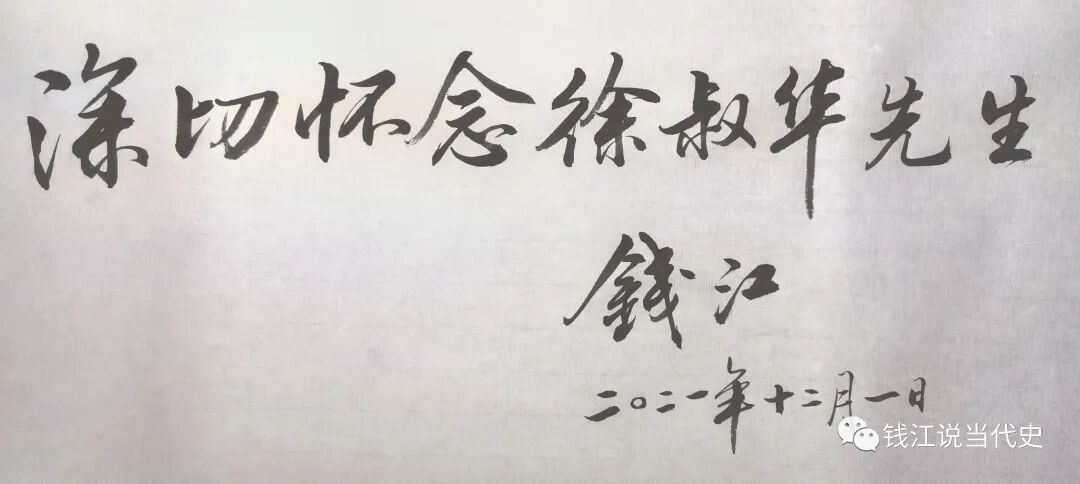 深切怀念徐叔华先生
錢江
二〇二一年十二月一日
钱江说当代史